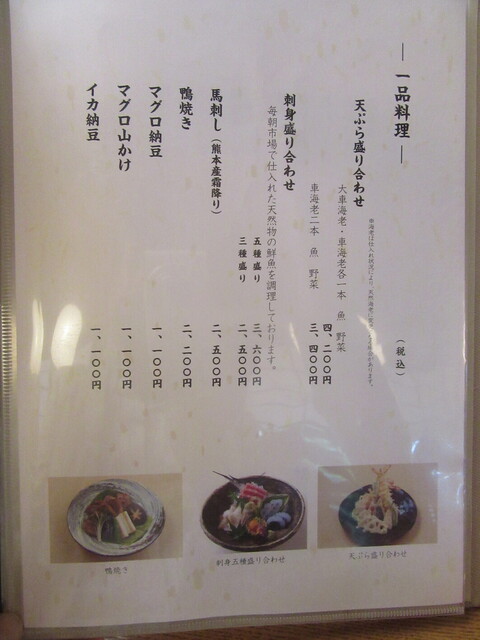 ― 一品料理 ―
（税込）
天ぷら盛り合わせ
大車海老・車海老各一本 魚 野菜
四、二〇〇円
車海老二本 魚 野菜
三、四〇〇円
刺身盛り合わせ
毎朝市場で仕入れた天然物の鮮魚を調理しております。
五種盛り
三、六〇〇円
三種盛り
二、五〇〇円
馬刺し（熊本産霜降り）
二、五〇〇円
鴨焼き
二、二〇〇円
マグロ納豆
一、一〇〇円
マグロ山かけ
一、一〇〇円
イカ納豆
一、一〇〇円
鴨焼き
刺身五種盛り合わせ
天ぷら盛り合わせ